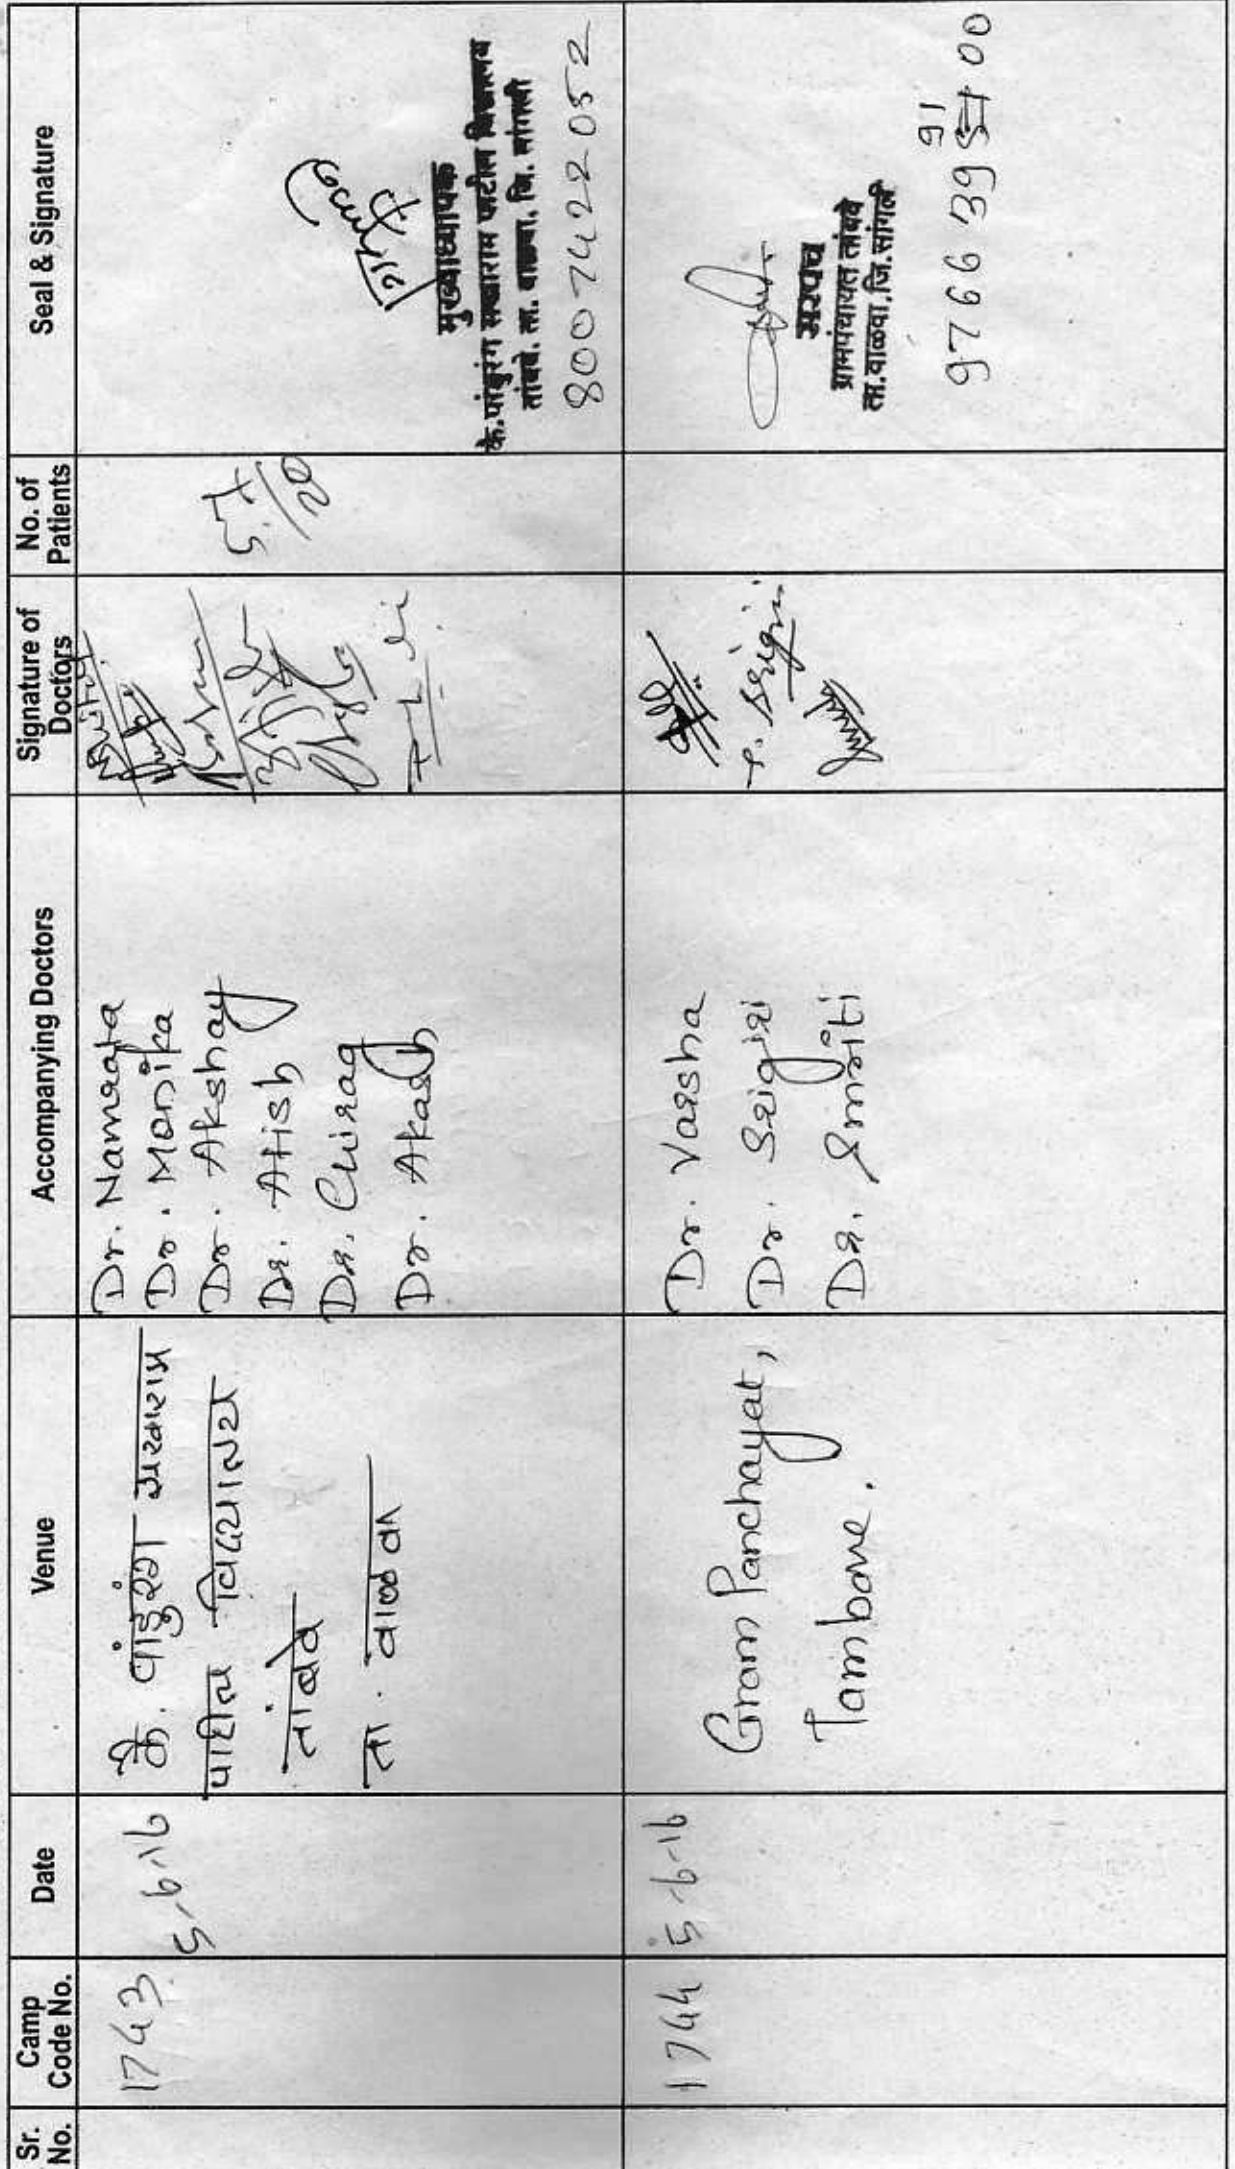 Sr. No.
Camp Code No.
Date
Venue
Accompanying Doctors
Signature of Doctors
No. of Patients
Seal & Signature
1743
5-6-16
कै. पांडुरंग सखाराम
पाटील विद्यालय
तांबवे
ता. वाळवा
Dr. Namrata
Dr. Monika
Dr. Akshay
Dr. Atish
Dr. Chirag
Dr. Akash
मुख्याध्यापक
कै.पांडुरंग सखाराम पाटील विद्यालय
तांबवे. ता. वाळवा. जि. सांगली
8007422052
1744
5-6-16
Gram Panchayat,
Tambave.
Dr. Varsha
Dr. Srigiri
Dr. Smriti
सरपंच
ग्रामपंचायत तांबवे
ता.वाळवा.जि.सांगली